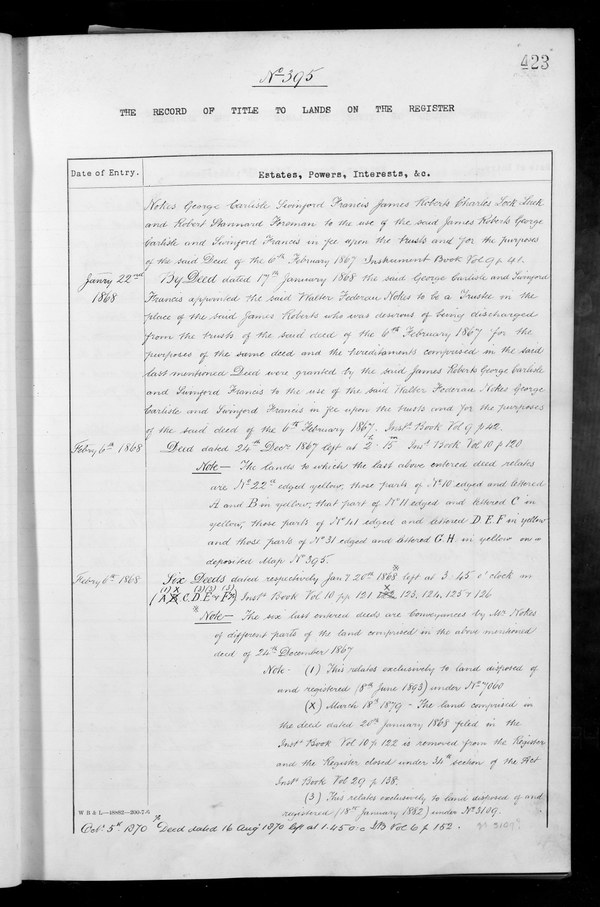 423
No 395
THE RECORD OF TITLE TO LANDS ON THE REGISTER
Date of Entry.
Estates, Powers, Interests, &c.
Nokes George Carlisle Swinford Francis James Roberts Charles Lock
and Robert Stannard Foreman to the use of the said James Roberts George
Carlisle and Swinford Francis in fee upon the trusts and for the purposes
of the said Deed of the 6th February 1867 Instrument Book Vol 9 p 41.
Janry 22nd By Deed dated 17th January 1868 the said George Carlisle and Swinford
1868 Francis appointed the said Walter Federau Nokes to be a Trustee in the
place of the said James Roberts who was desirous of being discharged
from the trusts of the said deed of the 6th February 1867 for the
purposes of the same deed and the hereditaments comprised in the said
last mentioned Deed were granted by the said James Roberts George Carlisle
and Swinford Francis to the use of the said Walter Federau Nokes George
Carlisle and Swinford Francis in fee upon the trusts and for the purposes
of the said deed of the 6th February 1867. Inst. Book Vol 9 p 42.
Febry 6th 1868 Deed dated 24th Decr 1867 left at 2h 15m Inst Book Vol 10 p 120
Note — The lands to which the last above entered deed relates
are No 22 edged yellow, those parts of No 10 edged and lettered
A and B in yellow, that part of No 11 edged and lettered C in
yellow, those parts of No 41 edged and lettered D. E. F in yellow
and those parts of No 31 edged and lettered G. H. in yellow on a
deposited Map No 395.
Febry 6th 1868 Six Deeds dated respectively Jany 20th 1868 left at 3:45 o'clock in
(1) X (3)(3) (3)
(A B C. D. E & F) Inst Book Vol 10 pp 121 122, 123, 124, 125 & 126
Note — The six last entered deeds are conveyances by Mr Nokes
of different parts of the land comprised in the above mentioned
deed of 24th December 1867
Note - (1) This relates exclusively to land disposed of
and registered (8th June 1893) under No 7060
(X) March 18th 1879 - The land comprised in
the deed dated 20th January 1868 filed in the
Inst Book Vol 10 p 122 is removed from the Register
and the Register closed under 34th section of the Act
Inst Book Vol 29 p 138.
(3) This relates exclusively to land disposed of and
registered (18th January 1882) under No 3109.
W B & L
Octr 5th 1870 Deed dated 16 Augt 1870 left at 1.45 Vol 6 p 152.